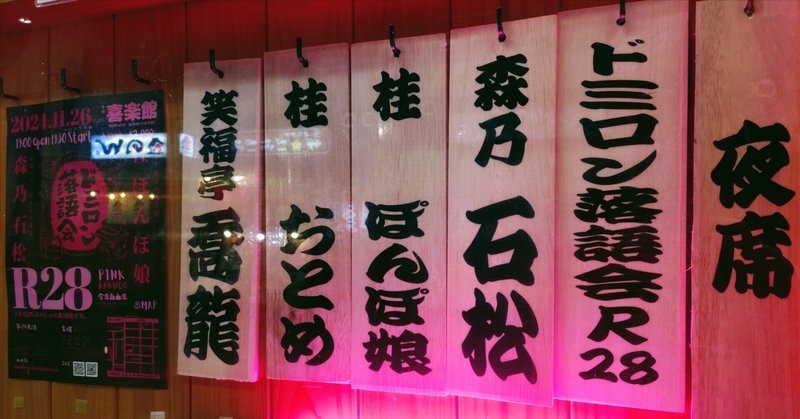 夜席
ドミロン落語会R28
森乃 石松
桂 ぽんぽ娘
桂 おとめ
笑福亭 喬龍
2024.11.26
喜楽館
19:00 Open 19:30 Start
ぽんぽ娘
ドミロン
落語会
森乃石松
R28
PINK
RAKUGO
MAP